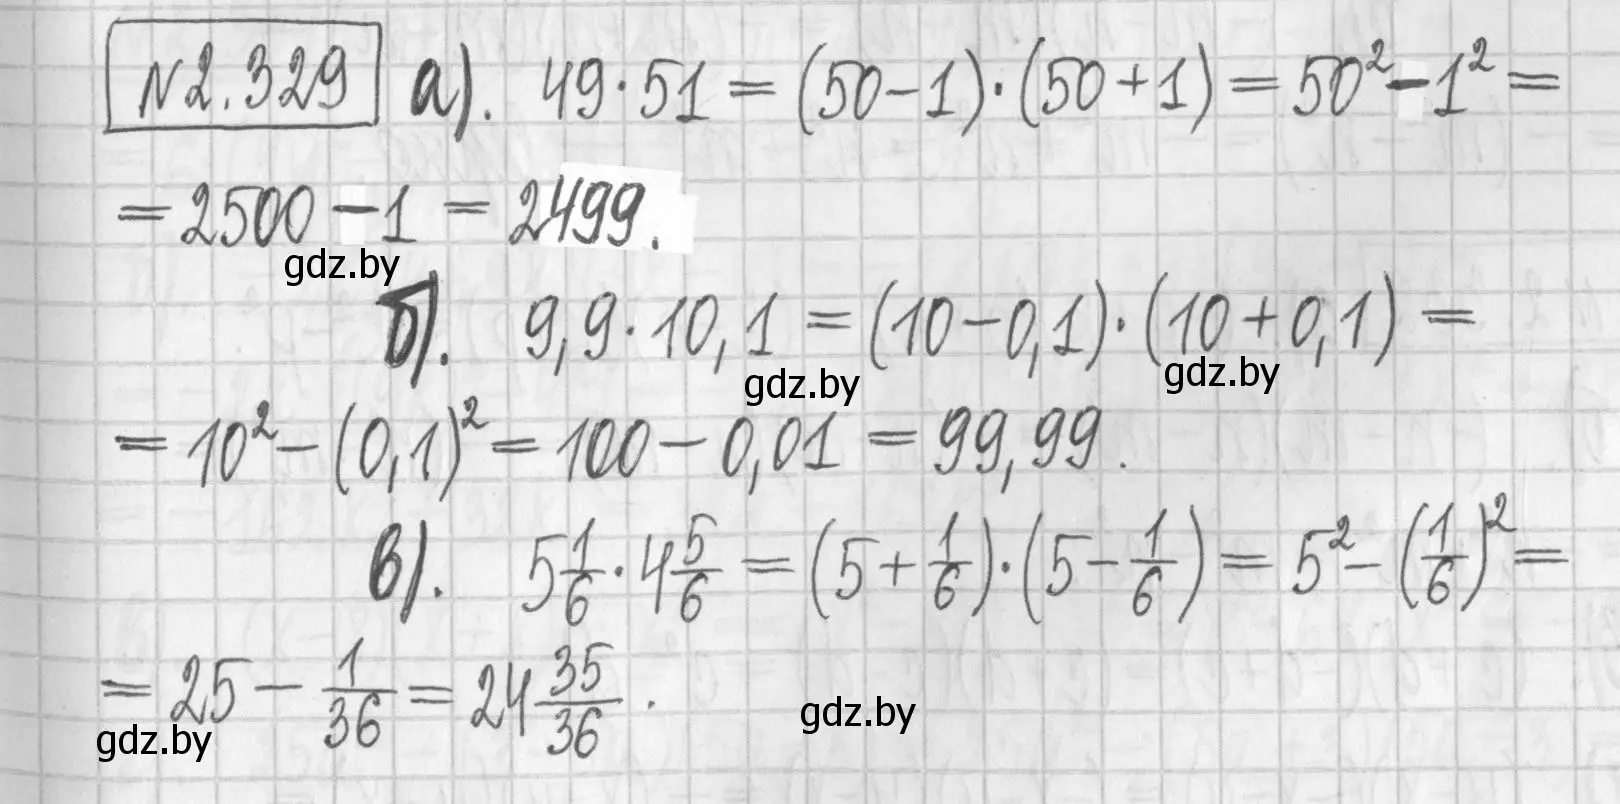 №2.329 а). 49·51 = (50-1)·(50+1) = 50² - 1² =
= 2500 - 1 = 2499.
gdz.by
б). 9,9·10,1 = (10-0,1)·(10+0,1) =
gdz.by gdz.by
= 10² - (0,1)² = 100 - 0,01 = 99,99.
в). 5 1/6 · 4 5/6 = (5 + 1/6)·(5 - 1/6) = 5² - (1/6)² =
= 25 - 1/36 = 24 35/36.
gdz.by gdz.by